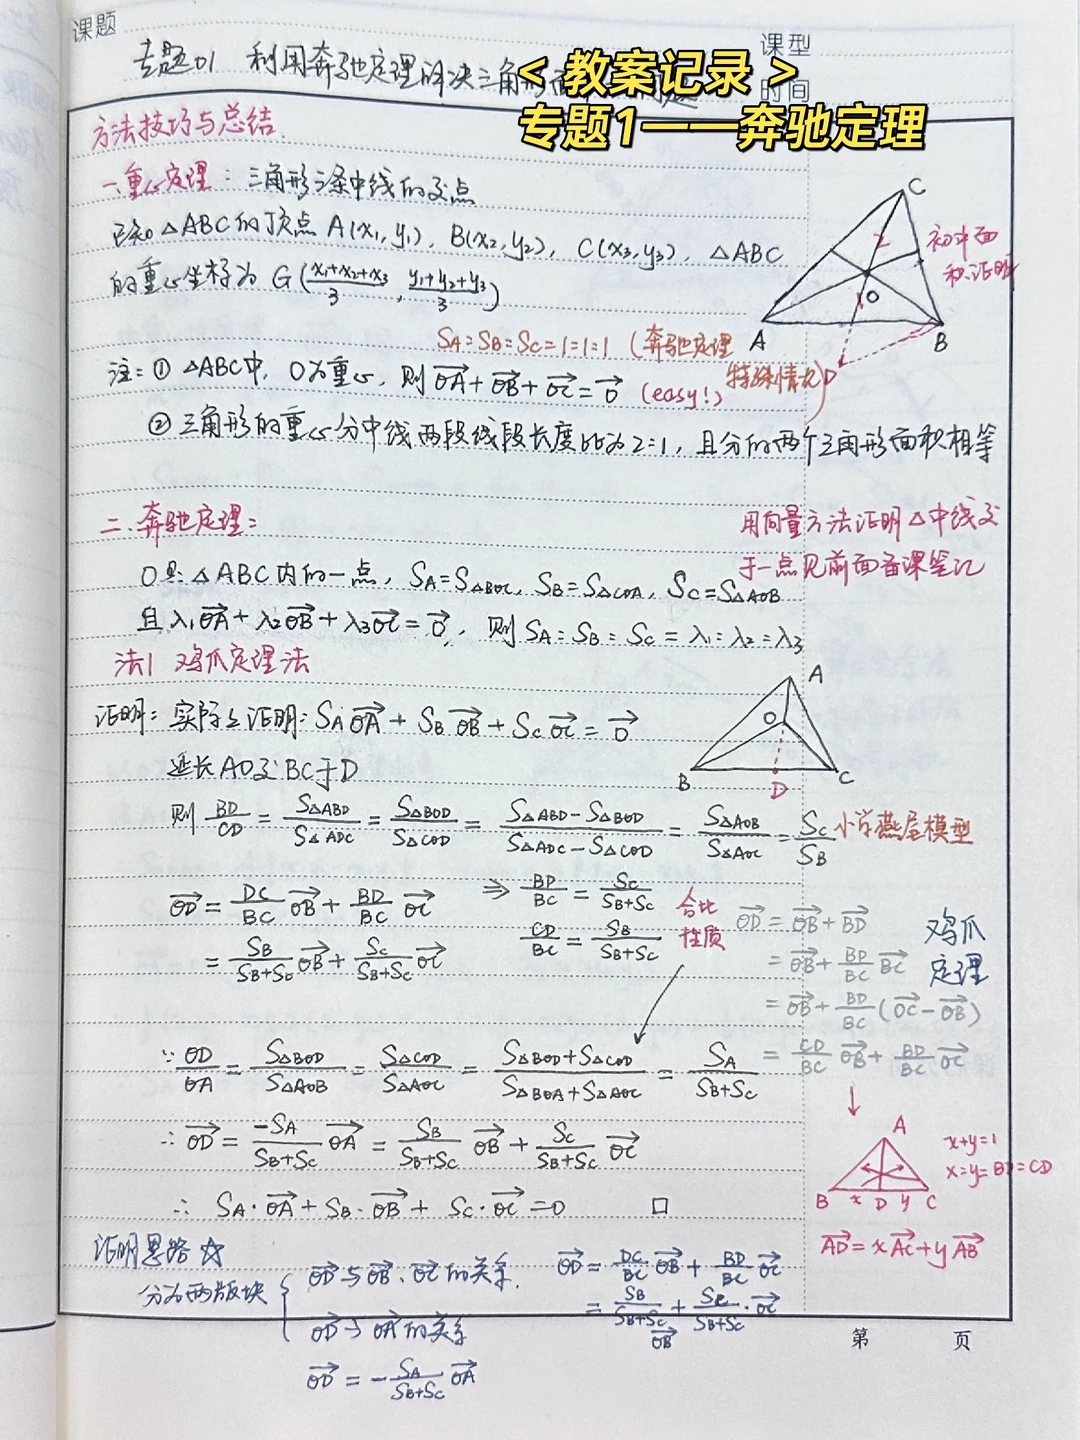 课题
专题01 利用奔驰定理解决三角形面
< 教案记录 >
专题1——奔驰定理
课型
时间
方法技巧与总结
一.重心定理：三角形三条中线的交点
已知△ABC的顶点 A(x₁,y₁), B(x₂,y₂), C(x₃,y₃), △ABC
的重心坐标为 G(x₁+x₂+x₃/3, y₁+y₂+y₃/3)
C
2
1
O
A
B
D
初中面
积证明
S_A:S_B:S_C=1:1:1 (奔驰定理
特殊情况)
注：① △ABC中, O为重心, 则 OA→+OB→+OC→=0→ (easy!)
② 三角形的重心分中线两段线段长度比为2:1, 且分的两个三角形面积相等
用向量方法证明△中线交
于一点见前面备课笔记
二.奔驰定理：
O是△ABC内的一点, S_A=S△BOC, S_B=S△COA, S_C=S△AOB
且 λ₁OA→+λ₂OB→+λ₃OC→=0→, 则 S_A:S_B:S_C=λ₁:λ₂:λ₃
法1 鸡爪定理法
证明：实际上证明：S_A OA→+S_B OB→+S_C OC→=0→
延长AO交BC于D
A
O
B
D
C
则 BD/CD = S△ABD/S△ADC = S△BOD/S△COD = S△ABD-S△BOD/S△ADC-S△COD = S△AOB/S△AOC = S_C/S_B 小学燕尾模型
OD→ = DC/BC OB→ + BD/BC OC→ ⇒ BD/BC = S_C/S_B+S_C
= S_B/S_B+S_C OB→ + S_C/S_B+S_C OC→ CD/BC = S_B/S_B+S_C
合比
性质
OD→ = OB→+BD→
= OB→ + BD/BC BC→
= OB→ + BD/BC (OC→-OB→)
= CD/BC OB→ + BD/BC OC→
鸡爪
定理
∵ OD/OA = S△BOD/S△AOB = S△COD/S△AOC = S△BOD+S△COD/S△BOA+S△AOC = S_A/S_B+S_C
∴ OD→ = -S_A/S_B+S_C OA→ = S_B/S_B+S_C OB→ + S_C/S_B+S_C OC→
∴ S_A·OA→+S_B·OB→+S_C·OC→=0 □
A
B x D y C
x+y=1
x:y=BD:CD
AD→=xAC→+yAB→
证明思路☆
分为两版块
OD→与OB→、OC→的关系.
OD→与OA→的关系
OD→ = -S_A/S_B+S_C OA→
OD→ = DC/BC OB→ + BD/BC OC→
= S_B/S_B+S_C OB→ + S_C/S_B+S_C·OC→
第 页